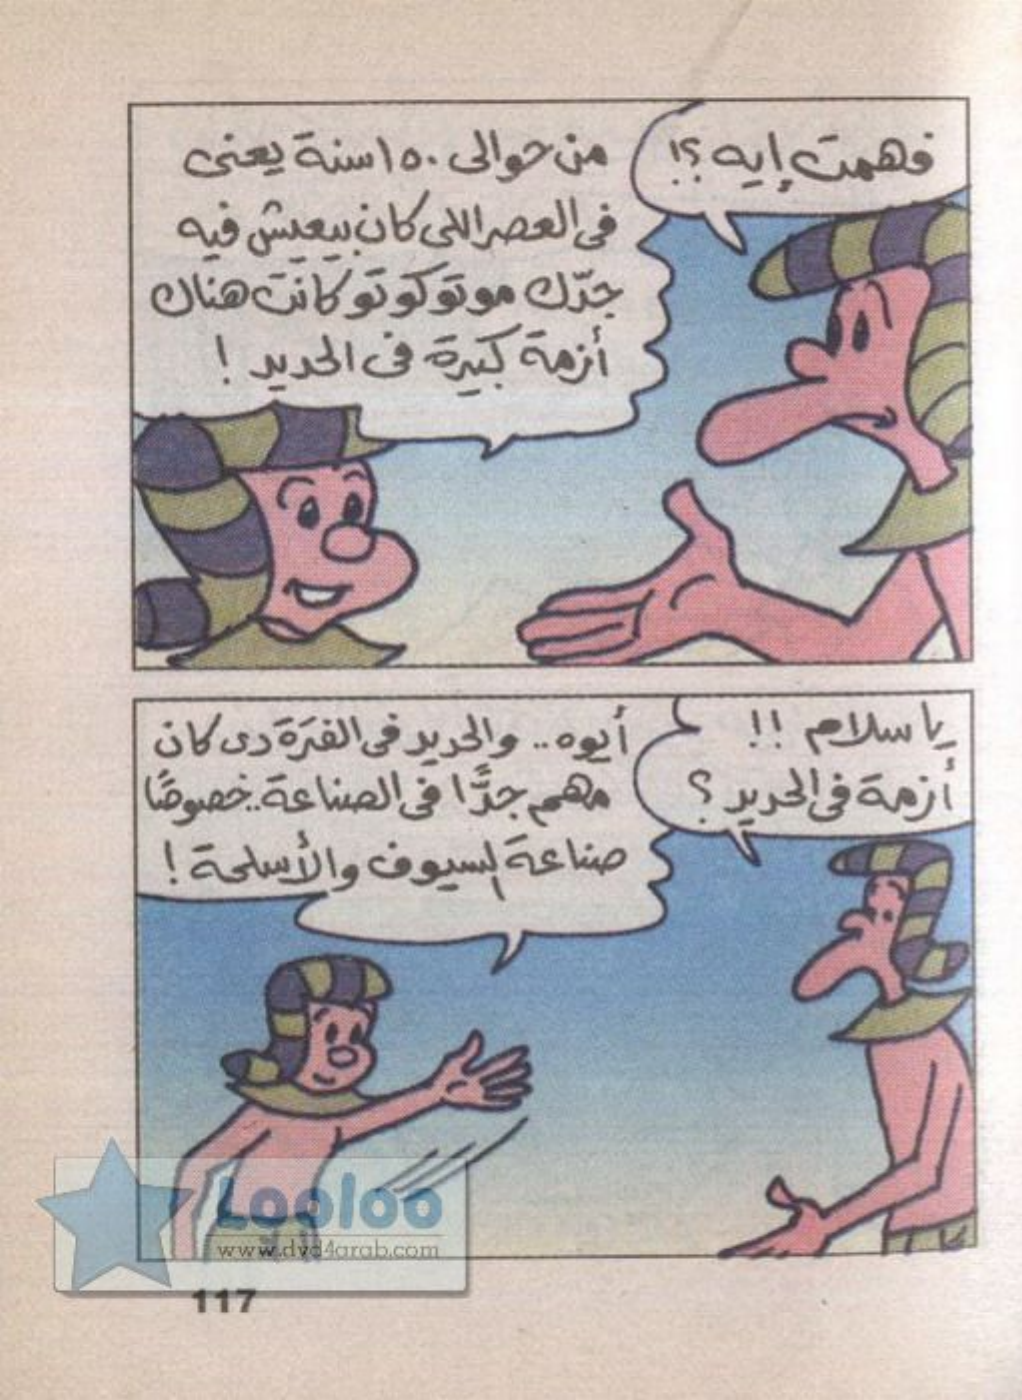 فهمت إيه ؟!
من حوالى ١٥٠ سنة يعنى
فى العصر اللى كان بيعيش فيه
جدّك موتوكوتو كانت هناك
أزمة كبيرة فى الحديد !
يا سلام !!
أزمة فى الحديد ؟
أيوه .. والحديد فى الفترة دى كان
مهم جدًّا فى الصناعة .. خصوصًا
صناعة السيوف والأسلحة !
Looloo
www.dvd4arab.com
117